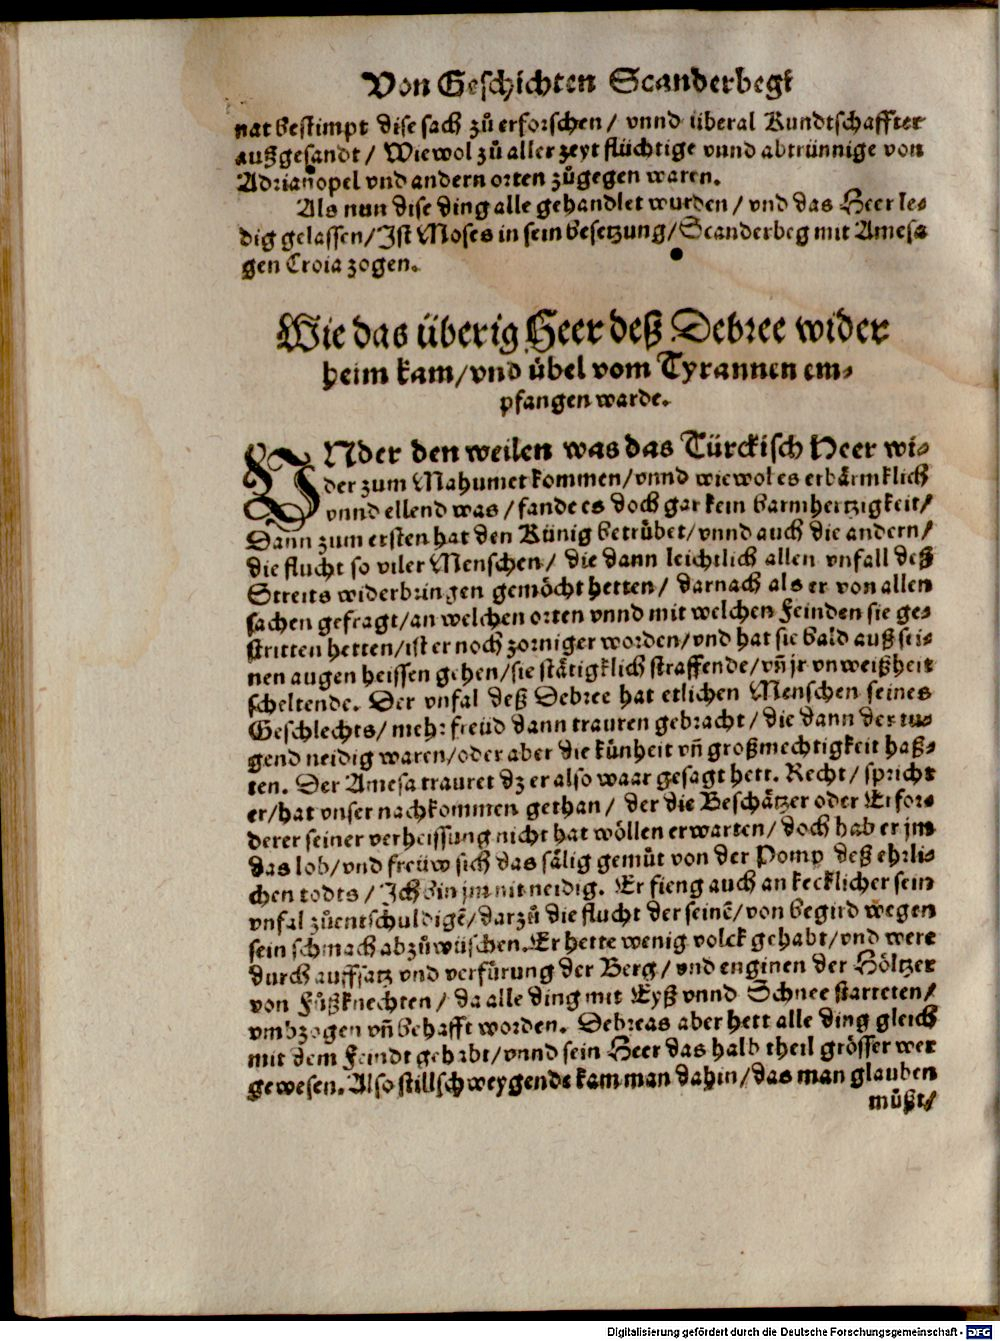 Von Geschichten Scanderbegi
nat bestimpt dise sach zů erforschen / vnnd überal Kundtschaffter
außgesandt / Wiewol zů aller zeyt flüchtige vnnd abtrünnige von
Adrianopel vnd andern orten zůgegen waren.
Als nun dise ding alle gehandlet wurden / vnd das Heer le-
dig gelassen / Ist Moses in sein besetzung / Scanderbeg mit Amesa
gen Croia zogen.
Wie das überig Heer deß Debree wider
heim kam / vnd übel vom Tyrannen em-
pfangen warde.
INder den weilen was das Türckisch Heer wi-
der zum Mahumet kommen / vnnd wiewol es erbärmklich
vnnd ellend was / fande es doch gar kein barmhertzigkeit /
Dann zum ersten hat den Künig betrübet / vnnd auch die andern /
die flucht so viler Menschen / die dann leichtlich allen vnfall deß
Streits widerbringen gemöcht hetten / darnach als er von allen
sachen gefragt / an welchen orten vnnd mit welchen Feinden sie ge-
stritten hetten / ist er noch zorniger worden / vnd hat sie bald auß sei-
nen augen heissen gehen / sie stätigklich straffende / vñ jr vnweißheit
scheltende. Der vnfal deß Debree hat etlichen Menschen seines
Geschlechts / mehr freüd dann trauren gebracht / die dann der tu-
gend neidig waren / oder aber die künheit vñ großmechtigkeit haß-
ten. Der Amesa trauret dz er also waar gesagt hett. Recht / spricht
er / hat vnser nachkommen gethan / der die Beschätzer oder Erfor-
derer seiner verheissung nicht hat wöllen erwarten / doch hab er jm
das lob / vnd freüw sich das sälig gemüt von der Pomp deß ehrli-
chen todts / Ich bin jm nit neidig. Er fieng auch an kecklicher sein
vnfal zůentschuldigẽ / darzů die flucht der seinẽ / von begird wegen
sein schmach abzůwüschen. Er hette wenig volck gehabt / vnd were
durch auffsatz vnd verfürung der Berg / vnd enginen der Höltzer
von Fůßknechten / da alle ding mit Eyß vnnd Schnee starreten /
vmbzogen vñ behafft worden. Debreas aber hett alle ding gleich
mit dem Feindt gehabt / vnnd sein Heer das halb theil grösser wer
gewesen. Also stillschweygende kam man dahin / das man glauben
müßt /
Digitalisierung gefördert durch die Deutsche Forschungsgemeinschaft - DFG